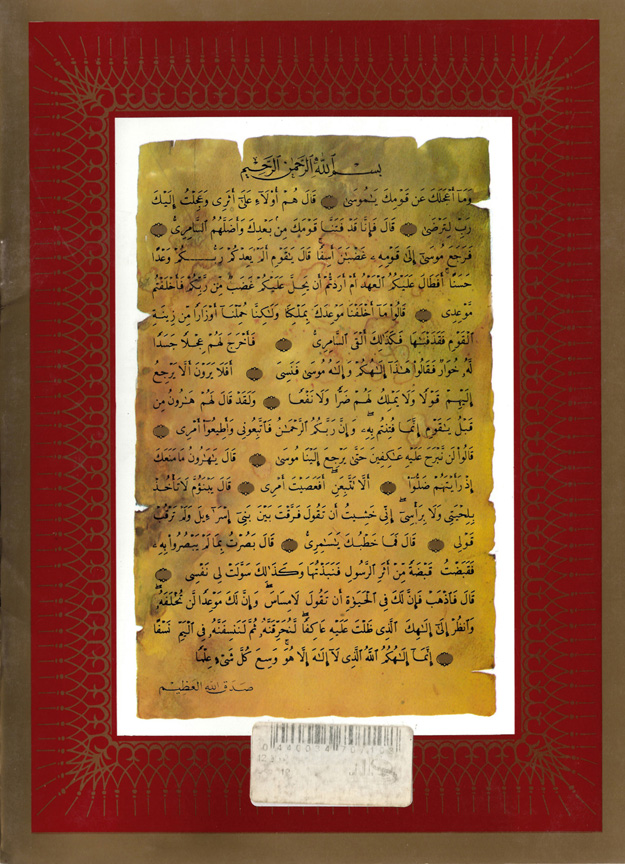 بِسْمِ ٱللَّهِ ٱلرَّحْمَٰنِ ٱلرَّحِيمِ
وَمَآ أَعْجَلَكَ عَن قَوْمِكَ يَٰمُوسَىٰ قَالَ هُمْ أُوْلَآءِ عَلَىٰٓ أَثَرِى وَعَجِلْتُ إِلَيْكَ
رَبِّ لِتَرْضَىٰ قَالَ فَإِنَّا قَدْ فَتَنَّا قَوْمَكَ مِنۢ بَعْدِكَ وَأَضَلَّهُمُ ٱلسَّامِرِىُّ
فَرَجَعَ مُوسَىٰٓ إِلَىٰ قَوْمِهِۦ غَضْبَٰنَ أَسِفًا قَالَ يَٰقَوْمِ أَلَمْ يَعِدْكُمْ رَبُّكُمْ وَعْدًا
حَسَنًا أَفَطَالَ عَلَيْكُمُ ٱلْعَهْدُ أَمْ أَرَدتُّمْ أَن يَحِلَّ عَلَيْكُمْ غَضَبٌ مِّن رَّبِّكُمْ فَأَخْلَفْتُم
مَّوْعِدِى قَالُوا۟ مَآ أَخْلَفْنَا مَوْعِدَكَ بِمَلْكِنَا وَلَٰكِنَّا حُمِّلْنَآ أَوْزَارًا مِّن زِينَةِ
ٱلْقَوْمِ فَقَذَفْنَٰهَا فَكَذَٰلِكَ أَلْقَى ٱلسَّامِرِىُّ فَأَخْرَجَ لَهُمْ عِجْلًا جَسَدًا
لَّهُۥ خُوَارٌ فَقَالُوا۟ هَٰذَآ إِلَٰهُكُمْ وَإِلَٰهُ مُوسَىٰ فَنَسِىَ أَفَلَا يَرَوْنَ أَلَّا يَرْجِعُ
إِلَيْهِمْ قَوْلًا وَلَا يَمْلِكُ لَهُمْ ضَرًّا وَلَا نَفْعًا وَلَقَدْ قَالَ لَهُمْ هَٰرُونُ مِن
قَبْلُ يَٰقَوْمِ إِنَّمَا فُتِنتُم بِهِۦ وَإِنَّ رَبَّكُمُ ٱلرَّحْمَٰنُ فَٱتَّبِعُونِى وَأَطِيعُوٓا۟ أَمْرِى
قَالُوا۟ لَن نَّبْرَحَ عَلَيْهِ عَٰكِفِينَ حَتَّىٰ يَرْجِعَ إِلَيْنَا مُوسَىٰ قَالَ يَٰهَٰرُونُ مَا مَنَعَكَ
إِذْ رَأَيْتَهُمْ ضَلُّوٓا۟ أَلَّا تَتَّبِعَنِ أَفَعَصَيْتَ أَمْرِى قَالَ يَبْنَؤُمَّ لَا تَأْخُذْ
بِلِحْيَتِى وَلَا بِرَأْسِىٓ إِنِّى خَشِيتُ أَن تَقُولَ فَرَّقْتَ بَيْنَ بَنِىٓ إِسْرَٰٓءِيلَ وَلَمْ تَرْقُبْ
قَوْلِى قَالَ فَمَا خَطْبُكَ يَٰسَٰمِرِىُّ قَالَ بَصُرْتُ بِمَا لَمْ يَبْصُرُوا۟ بِهِۦ
فَقَبَضْتُ قَبْضَةً مِّنْ أَثَرِ ٱلرَّسُولِ فَنَبَذْتُهَا وَكَذَٰلِكَ سَوَّلَتْ لِى نَفْسِى
قَالَ فَٱذْهَبْ فَإِنَّ لَكَ فِى ٱلْحَيَوٰةِ أَن تَقُولَ لَا مِسَاسَ وَإِنَّ لَكَ مَوْعِدًا لَّن تُخْلَفَهُۥ
وَٱنظُرْ إِلَىٰٓ إِلَٰهِكَ ٱلَّذِى ظَلْتَ عَلَيْهِ عَاكِفًا لَّنُحَرِّقَنَّهُۥ ثُمَّ لَنَنسِفَنَّهُۥ فِى ٱلْيَمِّ نَسْفًا
إِنَّمَآ إِلَٰهُكُمُ ٱللَّهُ ٱلَّذِى لَآ إِلَٰهَ إِلَّا هُوَ وَسِعَ كُلَّ شَىْءٍ عِلْمًا
صَدَقَ اللهُ العَظِيم